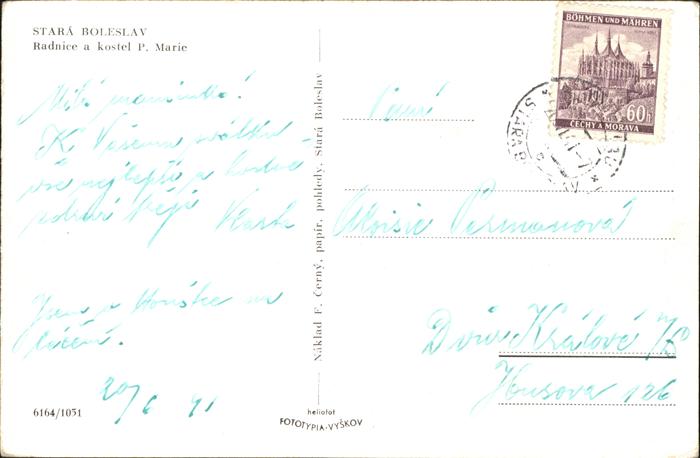 STARÁ BOLESLAV
Radnice a kostel P. Marie
Milá maminko!
K Vašemu svátku
vše nejlepší a hodně
zdraví přeje
Jsem v Houšťce na
léčení.
20/6 41
6164/1051
Náklad F. Černý, papír, pohledy, Stará Boleslav
heliofot
FOTOTYPIA-VYŠKOV
BÖHMEN UND MÄHREN
60h
ČECHY A MORAVA
STARÁ B
Paní
Aloisie Permanová
Dvůr Králové n/L
Husova 126